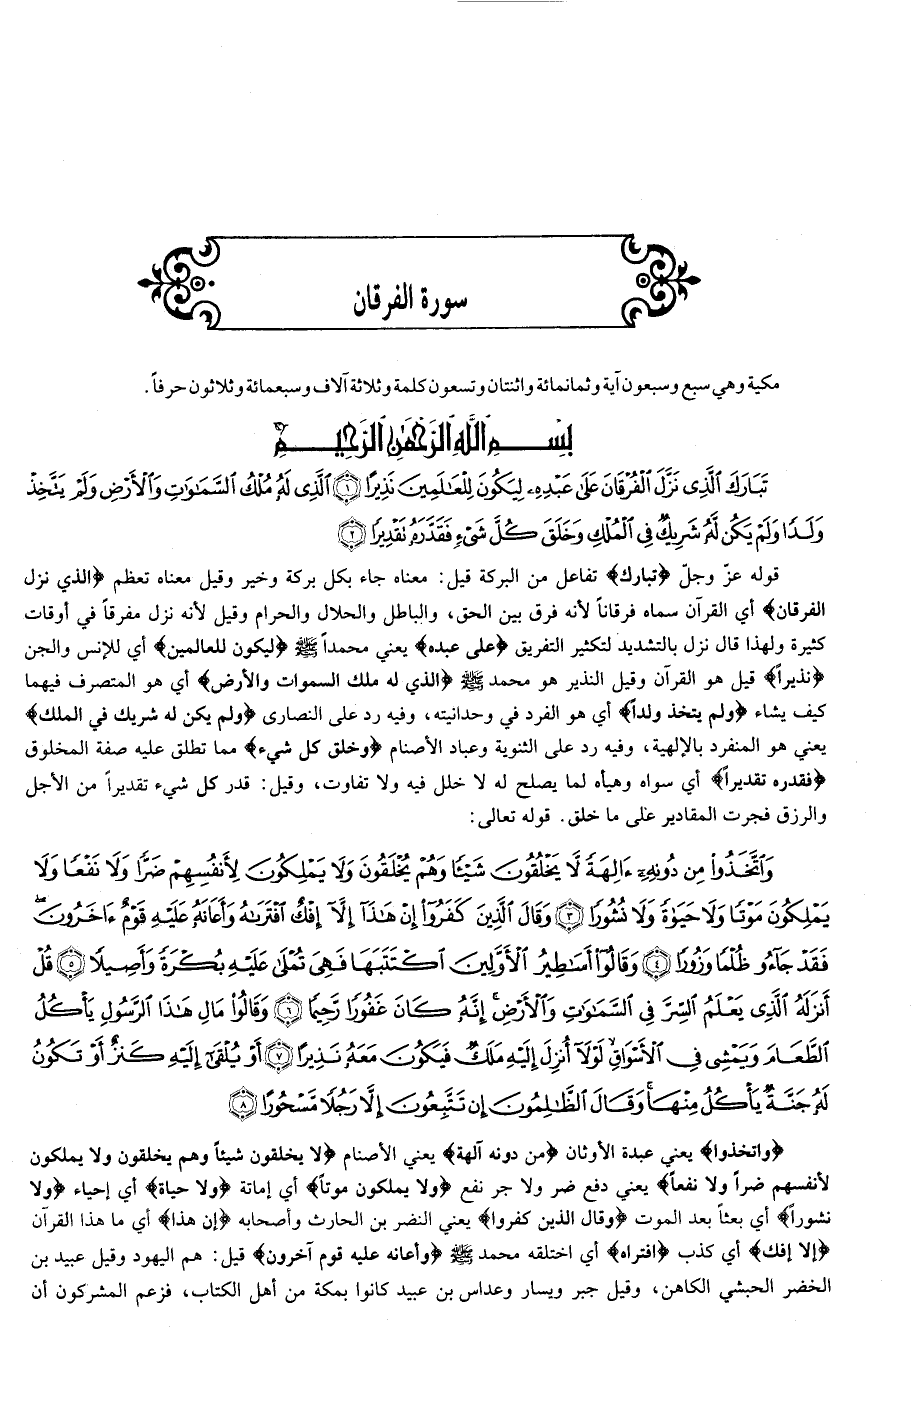 سورة الفرقان
مكية وهي سبع وسبعون آية وثمانمائة واثنتان وتسعون كلمة وثلاثة آلاف وسبعمائة وثلاثون حرفاً.
بِسْمِ اللَّهِ الرَّحْمَٰنِ الرَّحِيمِ
تَبَارَكَ ٱلَّذِى نَزَّلَ ٱلْفُرْقَانَ عَلَىٰ عَبْدِهِۦ لِيَكُونَ لِلْعَٰلَمِينَ نَذِيرًا ﴿١﴾ ٱلَّذِى لَهُۥ مُلْكُ ٱلسَّمَٰوَٰتِ وَٱلْأَرْضِ وَلَمْ يَتَّخِذْ
وَلَدًا وَلَمْ يَكُن لَّهُۥ شَرِيكٌ فِى ٱلْمُلْكِ وَخَلَقَ كُلَّ شَىْءٍ فَقَدَّرَهُۥ تَقْدِيرًا ﴿٢﴾
قوله عزّ وجلّ ﴿تبارك﴾ تفاعل من البركة قيل: معناه جاء بكل بركة وخير وقيل معناه تعظم ﴿الذي نزل
الفرقان﴾ أي القرآن سماه فرقاناً لأنه فرق بين الحق، والباطل والحلال والحرام وقيل لأنه نزل مفرقاً في أوقات
كثيرة ولهذا قال نزل بالتشديد لتكثير التفريق ﴿على عبده﴾ يعني محمداً ﷺ ﴿ليكون للعالمين﴾ أي للإنس والجن
﴿نذيراً﴾ قيل هو القرآن وقيل النذير هو محمد ﷺ ﴿الذي له ملك السموات والأرض﴾ أي هو المتصرف فيهما
كيف يشاء ﴿ولم يتخذ ولداً﴾ أي هو الفرد في وحدانيته، وفيه رد على النصارى ﴿ولم يكن له شريك في الملك﴾
يعني هو المنفرد بالإلهية، وفيه رد على الثنوية وعباد الأصنام ﴿وخلق كل شيء﴾ مما تطلق عليه صفة المخلوق
﴿فقدره تقديراً﴾ أي سواه وهيأه لما يصلح له لا خلل فيه ولا تفاوت، وقيل: قدر كل شيء تقديراً من الأجل
والرزق فجرت المقادير على ما خلق. قوله تعالى:
وَٱتَّخَذُوا۟ مِن دُونِهِۦٓ ءَالِهَةً لَّا يَخْلُقُونَ شَيْـًٔا وَهُمْ يُخْلَقُونَ وَلَا يَمْلِكُونَ لِأَنفُسِهِمْ ضَرًّا وَلَا نَفْعًا وَلَا
يَمْلِكُونَ مَوْتًا وَلَا حَيَوٰةً وَلَا نُشُورًا ﴿٣﴾ وَقَالَ ٱلَّذِينَ كَفَرُوٓا۟ إِنْ هَٰذَآ إِلَّآ إِفْكٌ ٱفْتَرَىٰهُ وَأَعَانَهُۥ عَلَيْهِ قَوْمٌ ءَاخَرُونَ ۖ
فَقَدْ جَآءُو ظُلْمًا وَزُورًا ﴿٤﴾ وَقَالُوٓا۟ أَسَٰطِيرُ ٱلْأَوَّلِينَ ٱكْتَتَبَهَا فَهِىَ تُمْلَىٰ عَلَيْهِ بُكْرَةً وَأَصِيلًا ﴿٥﴾ قُلْ
أَنزَلَهُ ٱلَّذِى يَعْلَمُ ٱلسِّرَّ فِى ٱلسَّمَٰوَٰتِ وَٱلْأَرْضِ ۚ إِنَّهُۥ كَانَ غَفُورًا رَّحِيمًا ﴿٦﴾ وَقَالُوا۟ مَالِ هَٰذَا ٱلرَّسُولِ يَأْكُلُ
ٱلطَّعَامَ وَيَمْشِى فِى ٱلْأَسْوَاقِ ۙ لَوْلَآ أُنزِلَ إِلَيْهِ مَلَكٌ فَيَكُونَ مَعَهُۥ نَذِيرًا ﴿٧﴾ أَوْ يُلْقَىٰٓ إِلَيْهِ كَنزٌ أَوْ تَكُونُ
لَهُۥ جَنَّةٌ يَأْكُلُ مِنْهَا ۚ وَقَالَ ٱلظَّٰلِمُونَ إِن تَتَّبِعُونَ إِلَّا رَجُلًا مَّسْحُورًا ﴿٨﴾
﴿واتخذوا﴾ يعني عبدة الأوثان ﴿من دونه آلهة﴾ يعني الأصنام ﴿لا يخلقون شيئاً وهم يخلقون ولا يملكون
لأنفسهم ضراً ولا نفعاً﴾ يعني دفع ضر ولا جر نفع ﴿ولا يملكون موتاً﴾ أي إماتة ﴿ولا حياة﴾ أي إحياء ﴿ولا
نشوراً﴾ أي بعثاً بعد الموت ﴿وقال الذين كفروا﴾ يعني النضر بن الحارث وأصحابه ﴿إن هذا﴾ أي ما هذا القرآن
﴿إلا إفك﴾ أي كذب ﴿افتراه﴾ أي اختلقه محمد ﷺ ﴿وأعانه عليه قوم آخرون﴾ قيل: هم اليهود وقيل عبيد بن
الخضر الحبشي الكاهن، وقيل جبر ويسار وعداس بن عبيد كانوا بمكة من أهل الكتاب، فزعم المشركون أن